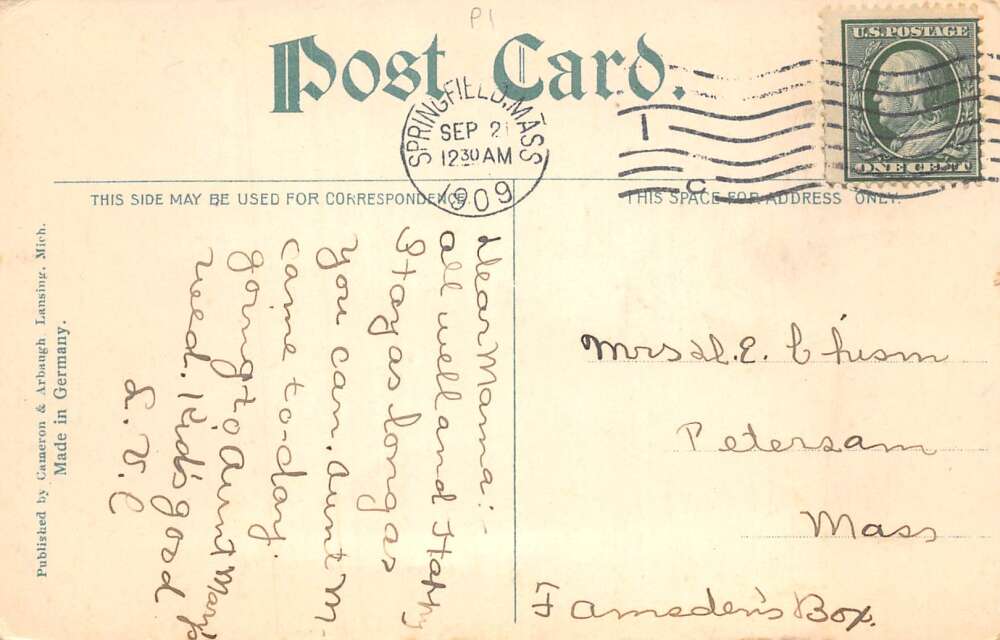 P1
Post Card.
SPRINGFIELD, MASS
SEP 21
12 30 AM
1909
1
C
U.S. POSTAGE
ONE CENT
THIS SIDE MAY BE USED FOR CORRESPONDENCE.
THIS SPACE FOR ADDRESS ONLY.
Published by Cameron & Arbaugh Lansing, Mich.
Made in Germany.
Dear Mama:-
all well and Happy
Stay as long as
you can. Aunt M.
came to-day.
going to Aunt Mary's
wed. Kid's good
L. V. C
Mrs H. E. Chism
Petersam
Mass
Box.